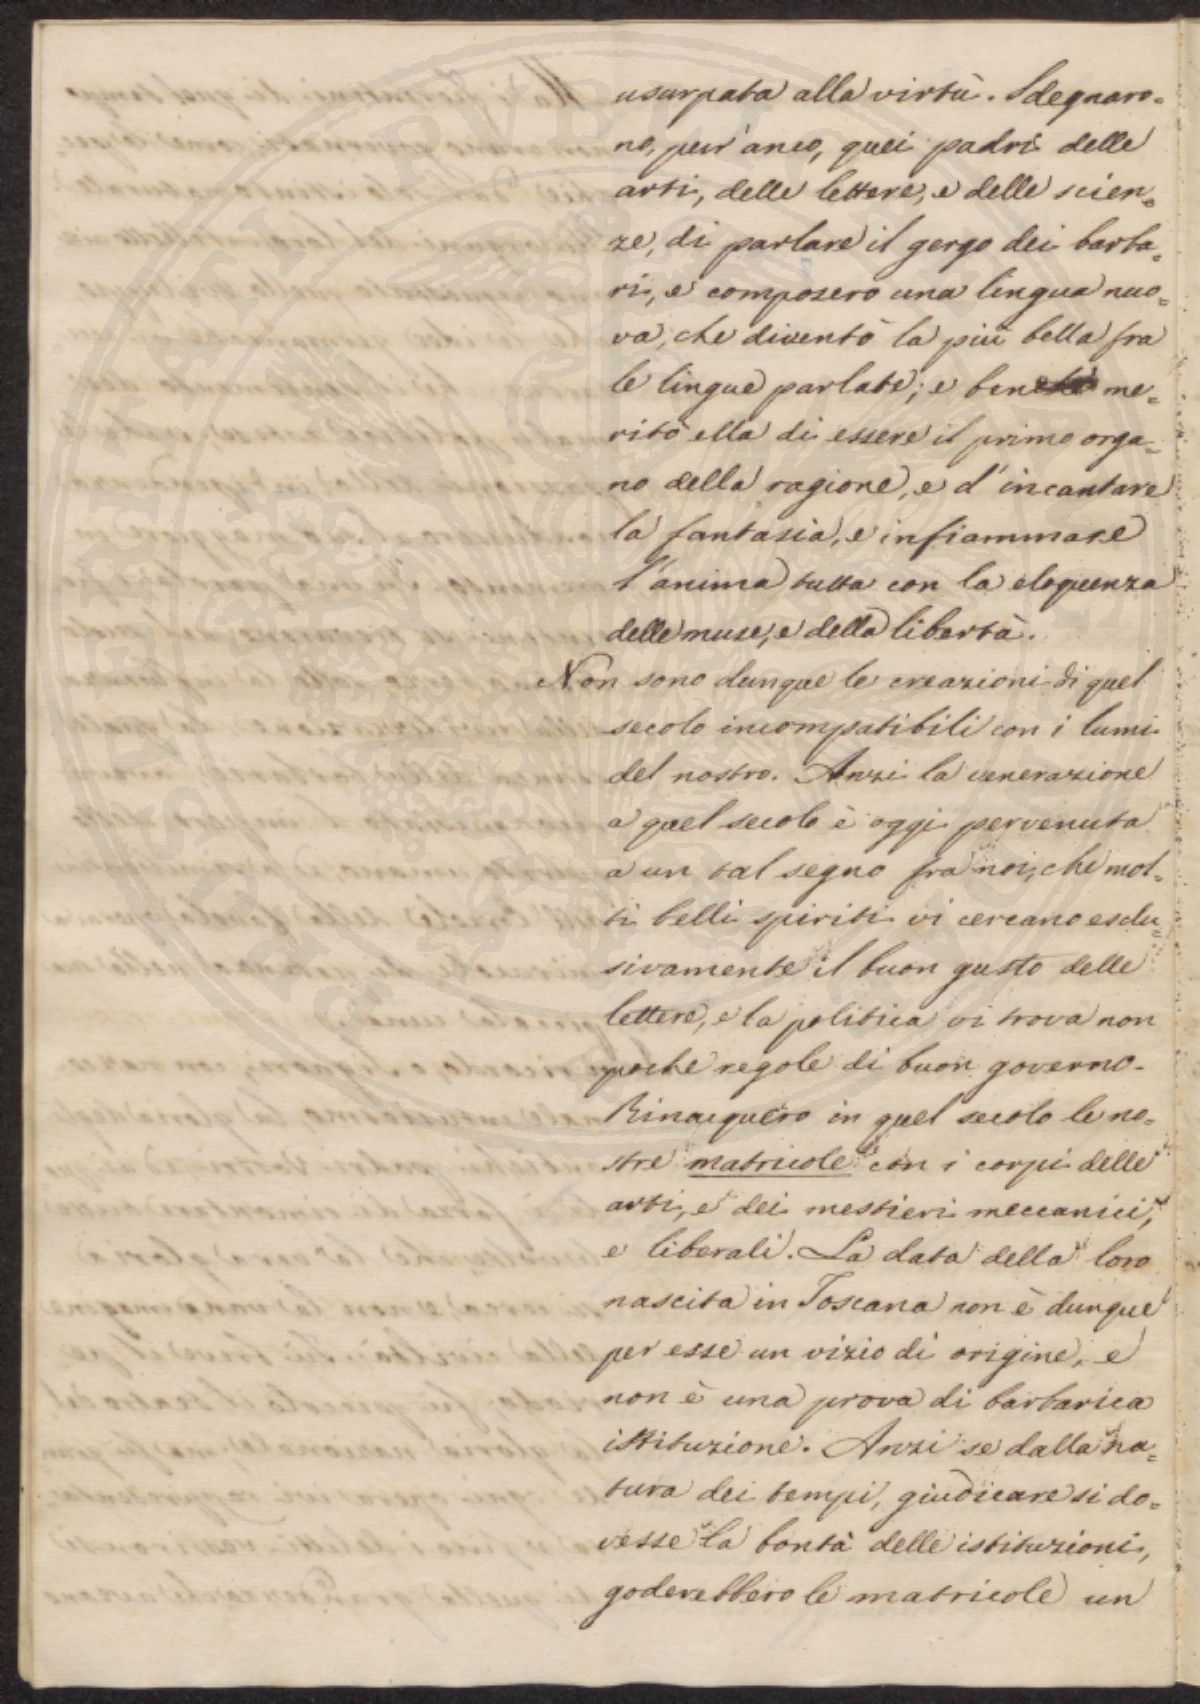 usurpata alla virtù. Sdegnaro=
no, pur'anco, quei padri delle
arti, delle lettere, e delle scien=
ze, di parlare il gergo dei barba=
ri, e composero una lingua nuo=
va, che diventò la più bella fra
le lingue parlate; e ben me=
ritò ella di essere il primo orga=
no della ragione, e d'incantare
la fantasia, e infiammare
l'anima tutta con la eloquenza
delle muse, e della libertà.
Non sono dunque le creazioni di quel
secolo incompatibili con i lumi
del nostro. Anzi la venerazione
a quel secolo è oggi pervenuta
a un tal segno fra noi, che mol=
ti belli spiriti vi cercano esclu=
sivamente il buon gusto delle
lettere, e la politica vi trova non
poche regole di buon governo.
Rinacquero in quel secolo le no=
stre matricole con i corpi delle
arti, e dei mestieri meccanici,
e liberali. La data della loro
nascita in Toscana non è dunque
per esse un vizio di origine, e
non è una prova di barbarica
istituzione. Anzi se dalla na=
tura dei tempi, giudicare si do=
vesse la bontà delle istituzioni,
goderebbero le matricole un